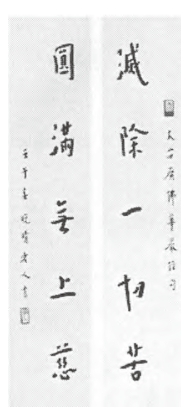 大方廣佛華嚴經句
滅除一切苦
圓滿無上慈
壬午春晚晴老人書